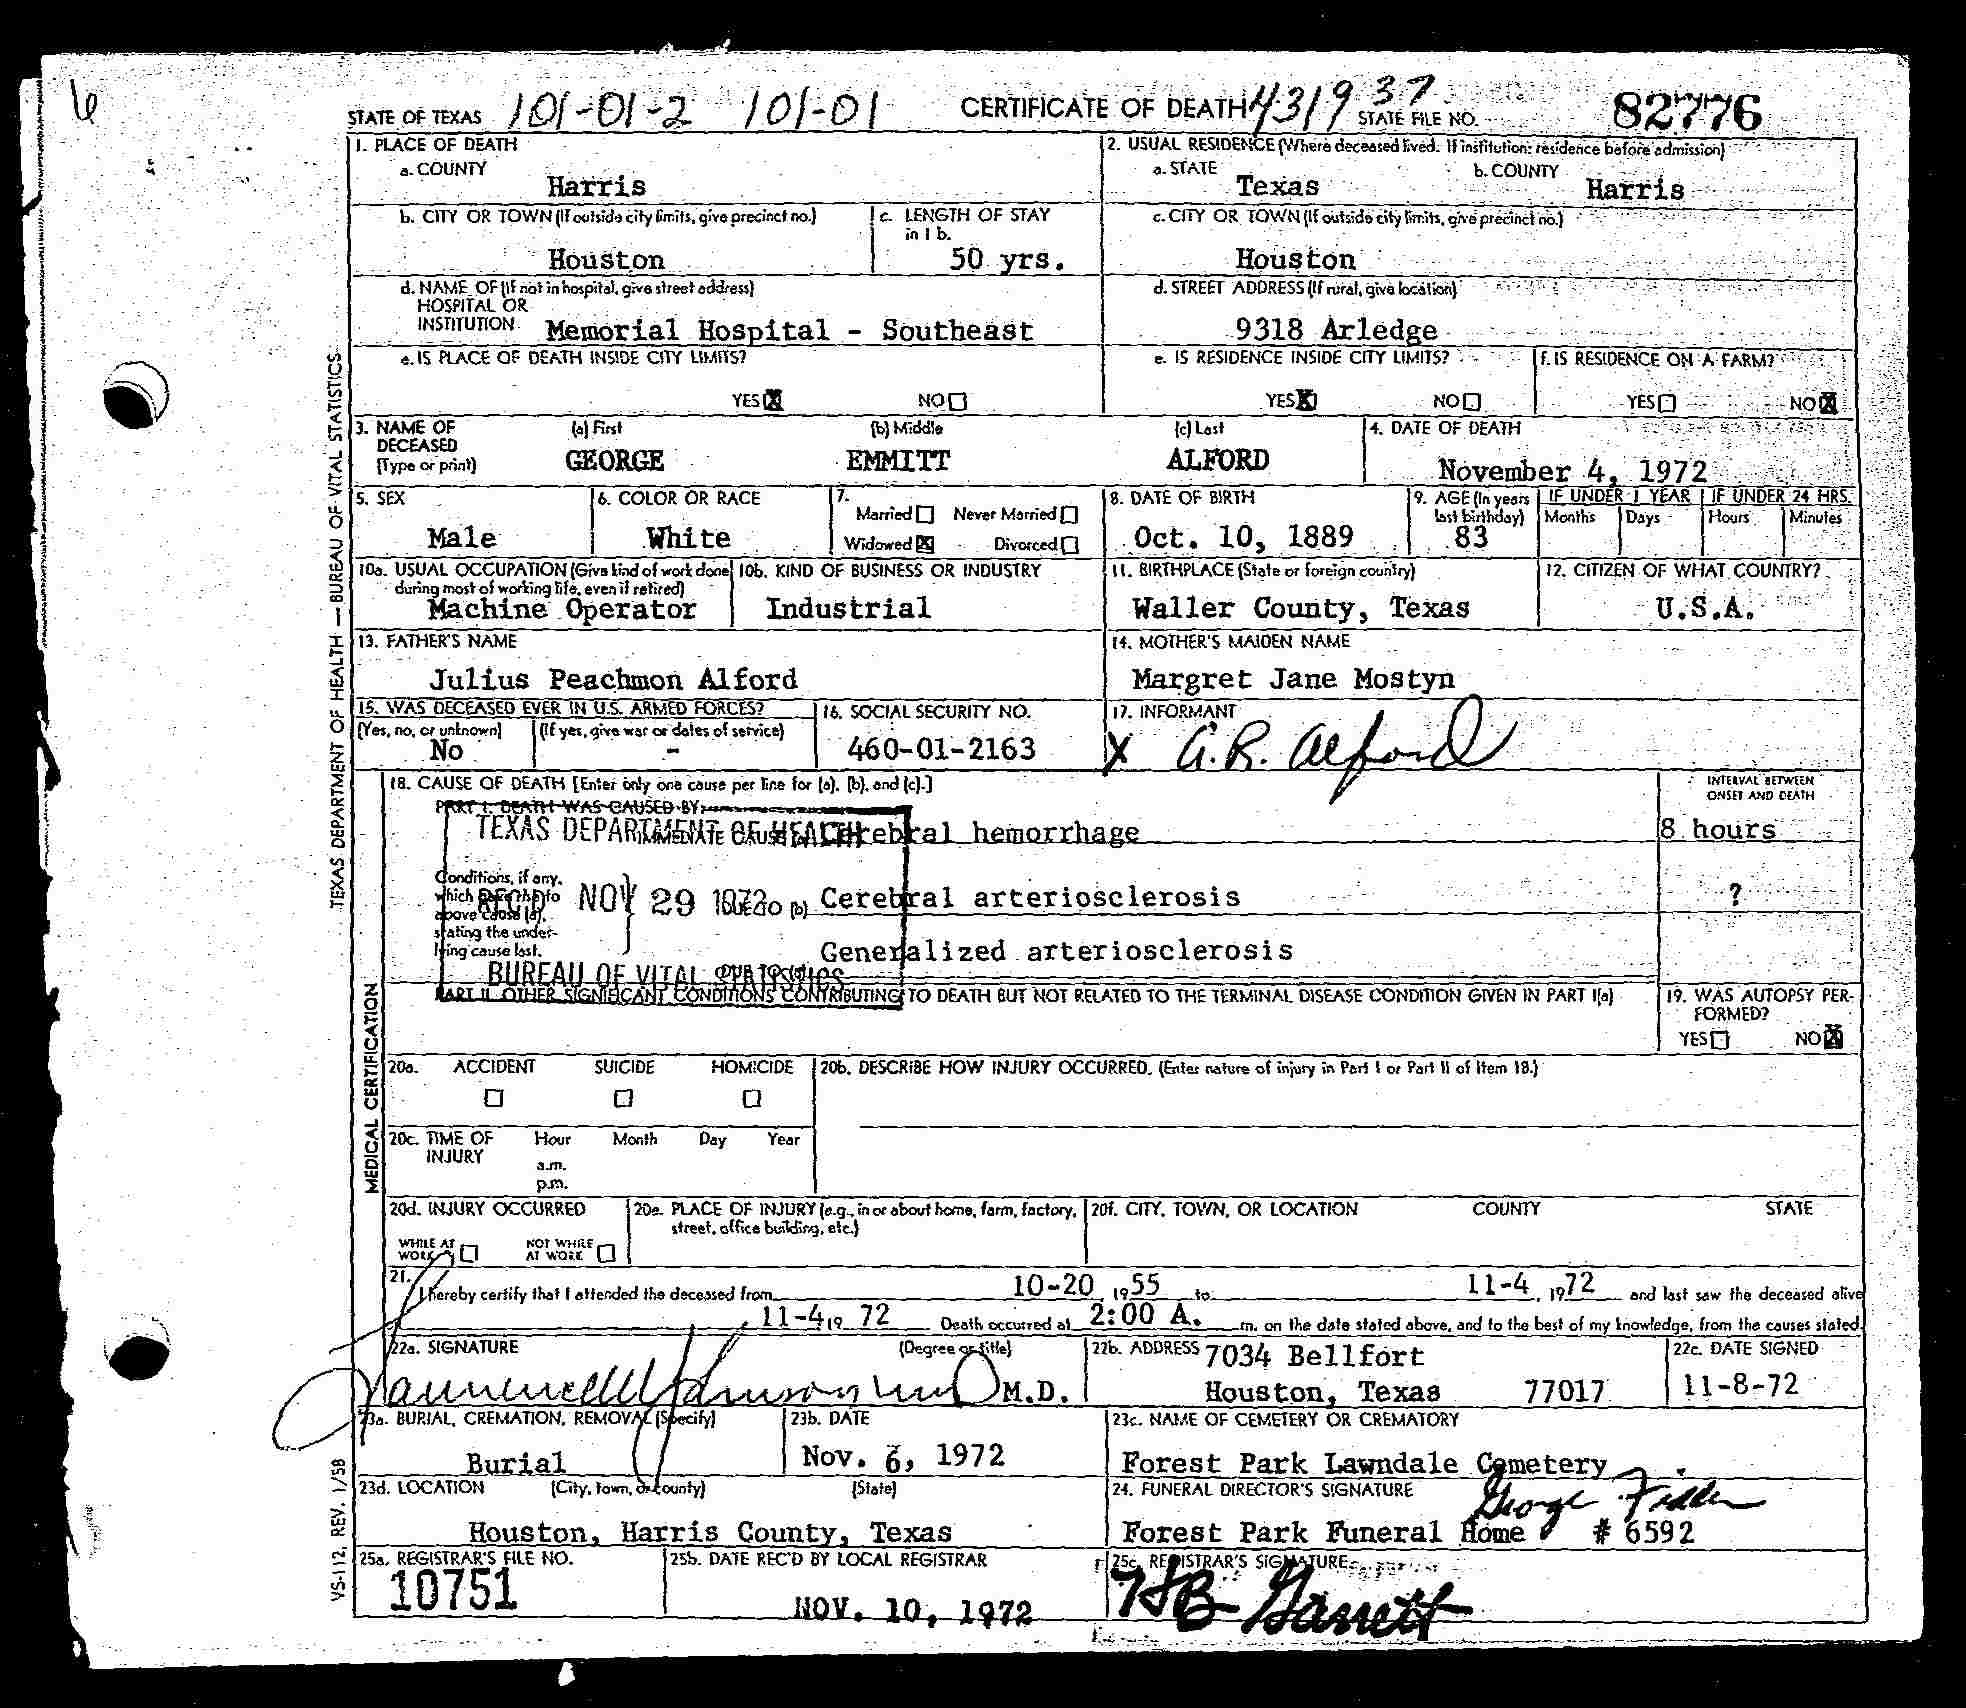 STATE OF TEXAS 101-01-2 101-01 CERTIFICATE OF DEATH 431937 STATE FILE NO. 82776
1. PLACE OF DEATH
a. COUNTY
Harris
2. USUAL RESIDENCE (Where deceased lived. If institution: residence before admission)
a. STATE
Texas
b. COUNTY
Harris
b. CITY OR TOWN (If outside city limits, give precinct no.)
Houston
c. LENGTH OF STAY
in 1 b.
50 yrs.
c. CITY OR TOWN (If outside city limits, give precinct no.)
Houston
d. NAME OF (If not in hospital, give street address)
HOSPITAL OR
INSTITUTION Memorial Hospital - Southeast
d. STREET ADDRESS (If rural, give location)
9318 Arledge
e. IS PLACE OF DEATH INSIDE CITY LIMITS?
YES X NO
e. IS RESIDENCE INSIDE CITY LIMITS?
YES X NO
f. IS RESIDENCE ON A FARM?
YES NO X
3. NAME OF
DECEASED
(Type or print)
(a) First
GEORGE
(b) Middle
EMMITT
(c) Last
ALFORD
4. DATE OF DEATH
November 4, 1972
5. SEX
Male
6. COLOR OR RACE
White
7.
Married Never Married
Widowed X Divorced
8. DATE OF BIRTH
Oct. 10, 1889
9. AGE (In years
last birthday)
83
IF UNDER 1 YEAR
Months Days
IF UNDER 24 HRS.
Hours Minutes
10a. USUAL OCCUPATION (Give kind of work done
during most of working life, even if retired)
Machine Operator
10b. KIND OF BUSINESS OR INDUSTRY
Industrial
11. BIRTHPLACE (State or foreign country)
Waller County, Texas
12. CITIZEN OF WHAT COUNTRY?
U.S.A.
13. FATHER'S NAME
Julius Peachmon Alford
14. MOTHER'S MAIDEN NAME
Margret Jane Mostyn
15. WAS DECEASED EVER IN U.S. ARMED FORCES?
(Yes, no, or unknown)
No
(If yes, give war or dates of service)
-
16. SOCIAL SECURITY NO.
460-01-2163
17. INFORMANT
X A.R. Alford
18. CAUSE OF DEATH [Enter only one cause per line for (a), (b), and (c).]
INTERVAL BETWEEN
ONSET AND DEATH
PART I. DEATH WAS CAUSED BY:
IMMEDIATE CAUSE Cerebral hemorrhage
8 hours
TEXAS DEPARTMENT OF HEALTH
REC'D NOV 29 1972
BUREAU OF VITAL STATISTICS
Conditions, if any,
which gave rise to
above cause (a),
stating the under-
lying cause last.
DUE TO (b) Cerebral arteriosclerosis
?
Generalized arteriosclerosis
PART II. OTHER SIGNIFICANT CONDITIONS CONTRIBUTING TO DEATH BUT NOT RELATED TO THE TERMINAL DISEASE CONDITION GIVEN IN PART I(a)
19. WAS AUTOPSY PER-
FORMED?
YES NO X
20a. ACCIDENT SUICIDE HOMICIDE
20b. DESCRIBE HOW INJURY OCCURRED. (Enter nature of injury in Part I or Part II of Item 18.)
20c. TIME OF
INJURY
Hour Month Day Year
a.m.
p.m.
20d. INJURY OCCURRED
WHILE AT
WORK
NOT WHILE
AT WORK
20e. PLACE OF INJURY (e.g., in or about home, farm, factory,
street, office building, etc.)
20f. CITY, TOWN, OR LOCATION COUNTY STATE
21.
I hereby certify that I attended the deceased from 10-20, 1955 to 11-4, 1972 and last saw the deceased alive
11-4, 19 72 Death occurred at 2:00 A. m. on the date stated above, and to the best of my knowledge, from the causes stated.
22a. SIGNATURE (Degree or title)
M.D.
22b. ADDRESS 7034 Bellfort
Houston, Texas 77017
22c. DATE SIGNED
11-8-72
23a. BURIAL, CREMATION, REMOVAL (Specify)
Burial
23b. DATE
Nov. 6, 1972
23c. NAME OF CEMETERY OR CREMATORY
Forest Park Lawndale Cemetery
23d. LOCATION (City, town, or county) (State)
Houston, Harris County, Texas
24. FUNERAL DIRECTOR'S SIGNATURE
Forest Park Funeral Home # 6592
25a. REGISTRAR'S FILE NO.
10751
25b. DATE REC'D BY LOCAL REGISTRAR
NOV. 10, 1972
25c. REGISTRAR'S SIGNATURE
HB Garrett
TEXAS DEPARTMENT OF HEALTH — BUREAU OF VITAL STATISTICS
MEDICAL CERTIFICATION
VS-112, REV. 1/58